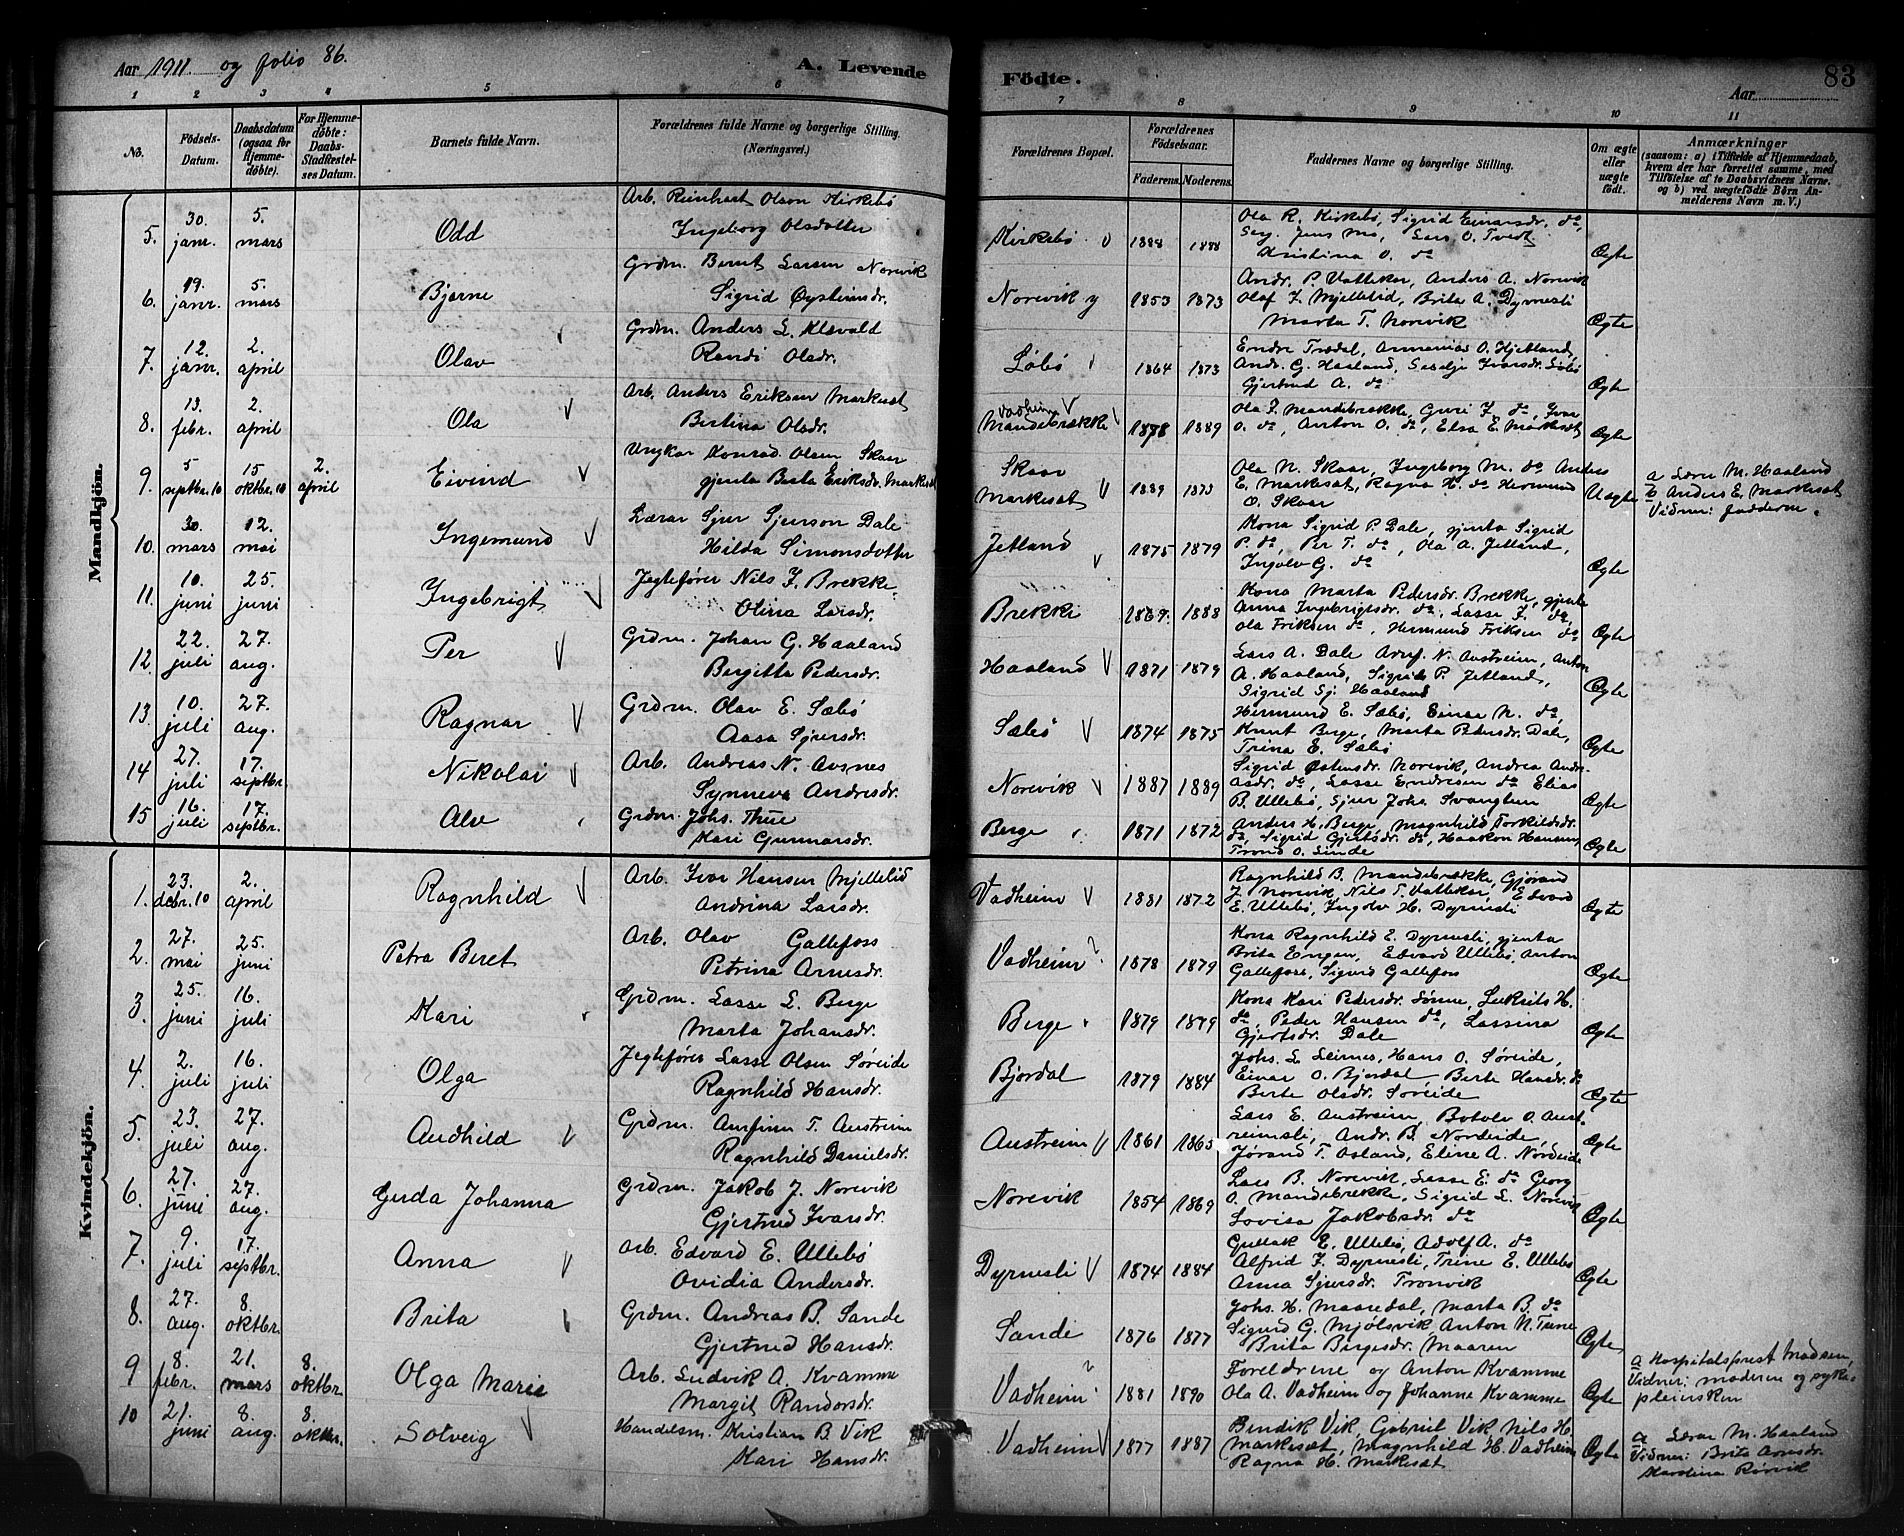 Aar 1911 og folio 86.
A. Levende Födte.
83
Aar
1 2 3 4 5 6 7 8 9 10 11
No.
Födsels-Datum.
Daabsdatum (ogsaa for Hjemmedöbte).
For Hjemmedöbte: Daabs-Stadfæstelses Datum.
Barnets fulde Navn.
Forældrenes fulde Navne og borgerlige Stilling. (Næringsvei.)
Forældrenes Bopæl.
Forældrenes Födselsaar.
Faderens. Moderens.
Faddernes Navne og borgerlige Stilling.
Om ægte eller uægte födt.
Anmærkninger
(saasom: a) i Tilfælde af Hjemmedaab, hvem der har forrettet samme, med Tilföielse af to Daabsvidners Navne, og b) ved uægtefödte Börn Anmelderens Navn m. V.)
Mandkjön.
5. 30. janr. 5. mars Odd Arb. Reinhart Olson Kirkebö Ingeborg Olsdotter Kirkebö 1884 1888 Ola R. Kirkebö, Sigrid Einarsdr. do, Serg. Jens Mo, Lars O. Tvedt Kristina O. do Ægte
6. 19. janr. 5. mars Bjarne Grdm. Bernt Larsen Norevik Sigrid Øysteinsdr. Norevik 1853 1873 Andr. P. Vattekar, Anders A. Norevik Olaf I. Mjellelid, Brita A. Dyrnesli Marta T. Norevik Ægte
7. 12. janr. 2. april Olav Grdm. Anders L. Klævold Randi Olsdr. Löbö 1864 1873 Endre Trædal, Armenias O. Hjetland, Andr. G. Haaland, Seselje Ivarsdr. Löbö Gjertrud A. do Ægte
8. 13. febr. 2. april Ola Arb. Anders Eriksen Markesæt Bertina Olsdr. Vadheim Mandebrække 1878 1889 Ola I. Mandebrekke, Guri I. do, Ivar O. do, Anton O. do, Elsa E. Markesæt Ægte
9. 5 septbr. 10 15 oktbr. 10 2. april Eivind Ungkar Konrad Olsen Skaar gjenta Berta Eriksdr. Markesæt Skaar Markesæt 1889 1873 Ola N. Skaar, Ingeborg M. do Anders E. Markesæt, Ragna H. do Hermund O. Skaar Uægte a Lærer M. Haaland b Anders E. Markesæt Vidner: fadderne.
10. 30. mars 12. mai Ingemund Lærar Sjur Sjurson Dale Hilda Simonsdotter Jetland 1875 1879 Kona Sigrid P. Dale, gjenta Sigrid P. do, Per T. do, Ola A. Jetland, Ingolv G. do Ægte
11. 10. juni 25. juni Ingebrigt Jegtefører Nils I. Brekke, Olina Larsdr. Brekke 1869. 1888 Kona Marta Pedersdr. Brekke, gjenta Anna Ingebrigtsdr. do, Lasse I. do, Ola Eriksen do, Hermund Eriksen do Ægte
12. 22. juli 27. aug. Per Grdm. Johan G. Haaland Bergitta Pedersdr. Haaland 1871 1879 Lars A. Dale Arnf. N. Austreim, Anton A. Haaland, Sigrid P. Jetland, Sigrid Sj. Haaland Ægte
13. 10. juli 27. aug. Ragnar Grdm. Olav E. Sæbö Aasa Sjursdr. Sæbö 1874 1875 Hermund E. Sæbö, Einar N. do, Knut Berge, Marta Pedersdr. Dale, Trina E. Sæbö Ægte
14 27. juli 17. septbr. Nikolai Arb. Andreas N. Avsnes Synneva Andresdr. Norevik 1887 1889 Sigrid Østensdr. Norevik, Andrea Andreasdr. do, Lasse Endresen do Elias B. Ullebö, Sjur Johs. Svangtun Ægte
15 16. juli 17. septbr. Alv Grdm. Johs. Thue Kari Gunnarsdr. Berge 1871 1872 Anders H. Berge, Magnhild Torkildsdr. do, Sigrid Gjertsdr. do, Haakon Hansen, Trond O. Sinde Ægte
Kvindekjön.
1. 23. debr. 10 2. april Ragnhild Arb. Ivar Hansen Mjellelid Andrina Larsdr. Vadheim 1881 1872 Ragnhild B. Mandebrække, Gjørand I. Norevik, Nils T. Vattekar, Edvard E. Ullebö, Ingolv H. Dyrnesli Ægte
2. 27. mai 25. juni Petra Beret Arb. Olav Gallefoss Petrina Arnesdr. Vadheim ? 1878 1879 Kona Ragnhild E. Dyrnesli, gjenta Brita Engen, Edvard Ullebö, Anton Gallefoss, Sigurd Gallefoss Ægte
3. 25. juni 16. juli Kari Grdm. Lasse L. Berge Marta Johansdr. Berge 1879 1879 Kona Kari Pedersdr. Sönne, H. do, Peder Hansen do, Lassina Gjertsdr. Dale Ægte
4. 2. juli 16. juli Olga Jegtefører Lasse Olsen Søreide Ragnhild Hansdr. Bjordal 1879 1884 Johs. L. Leirnes, Hans O. Søreide, Einar O. Bjordal Berte Hansdr. do Berte Olsdr. Søreide Ægte
5. 23. juli 27. aug. Audhild Grdm. Arnfinn T. Austreim Ragnhild Danielsdr. Austreim 1861 1865 Lars E. Austreim, Botolv O. Austreimsli, Andr. B. Nordeide, Jørand T. Osland, Eline A. Nordeide Ægte
6. 27. juni 27. aug. Gerda Johanna Grdm. Jakob J. Norevik Gjertrud Ivarsdr. Norevik 1854 1869 Lars B. Norevik, Lasse E. do Georg O. Mandebrekke, Sigrid L. Norevik Lovisa Jakobsdr. do Ægte
7. 9. juli 17. septbr. Anna Arb. Edvard E. Ullebö Ovidia Andersdr. Dyrnesli 1874 1884 Gullak E. Ullebö, Adolf A. do Alfrid I. Dyrnesli, Trine E. Ullebö Anna Sjursdr. Tronvik Ægte
8. 27. aug. 8. oktbr. Brita Grdm. Andreas B. Sande Gjertrud Hansdr. Sande 1876 1877 Johs. H. Maaredal, Marta B. do Sigurd G. Mjölsvik Anton N. Brita Børgesdr. Maaren Ægte
9 8. febr. 21. mars 8. oktbr. Olga Marie Arb. Ludvik A. Kvamme Margit Randorsdr. Vadheim ? 1881 1890 Foreldrene og Anton Kvamme Ola A. Vadheim og Johanne Kvamme Ægte a Hospitalsprest Madsen, Vidner: moderen og sykepleiersken
10 21. juni 8. aug. 8. oktbr. Solveig Handelsm. Kristian B. Vik Kari Hansdr. Vadheim 1877 1887 Bendik Vik, Gabriel Vik, Nils H. Markesæt, Magnhild H. Vadheim Ragna H. Markesæt Ægte a Lærar M. Haaland Vidner: Brita Arnesdr. Karolina Rørvik